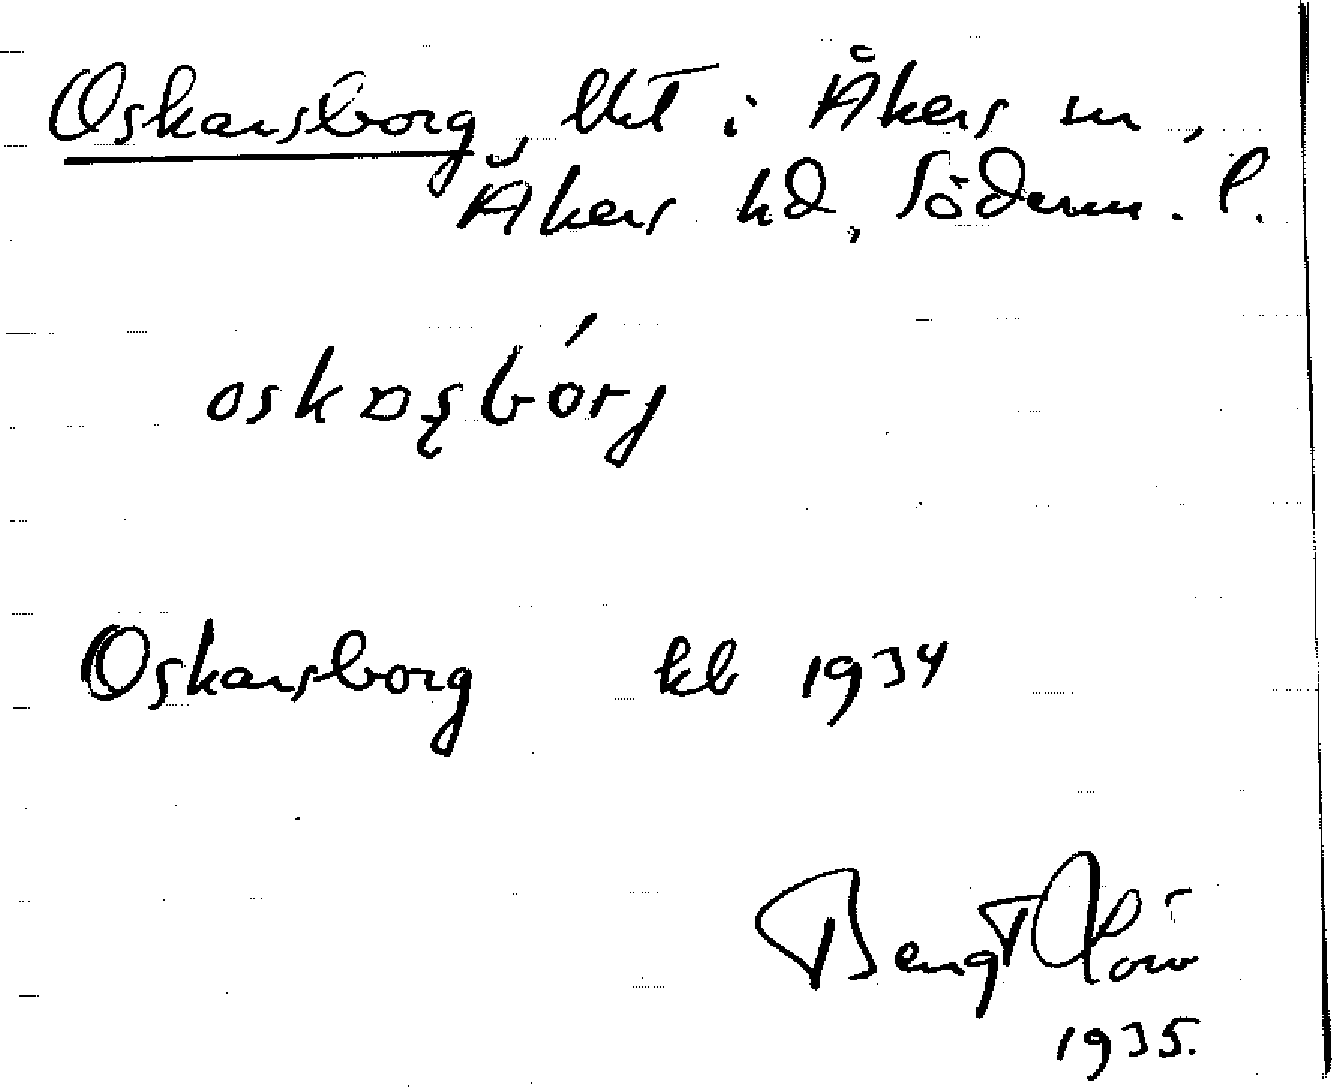 Oskarsborg, lht i Åkers sn,
Åkers hd, Söderm. l.
oskaʂbórj
Oskarsborg kb 1934
Bengt
1935.